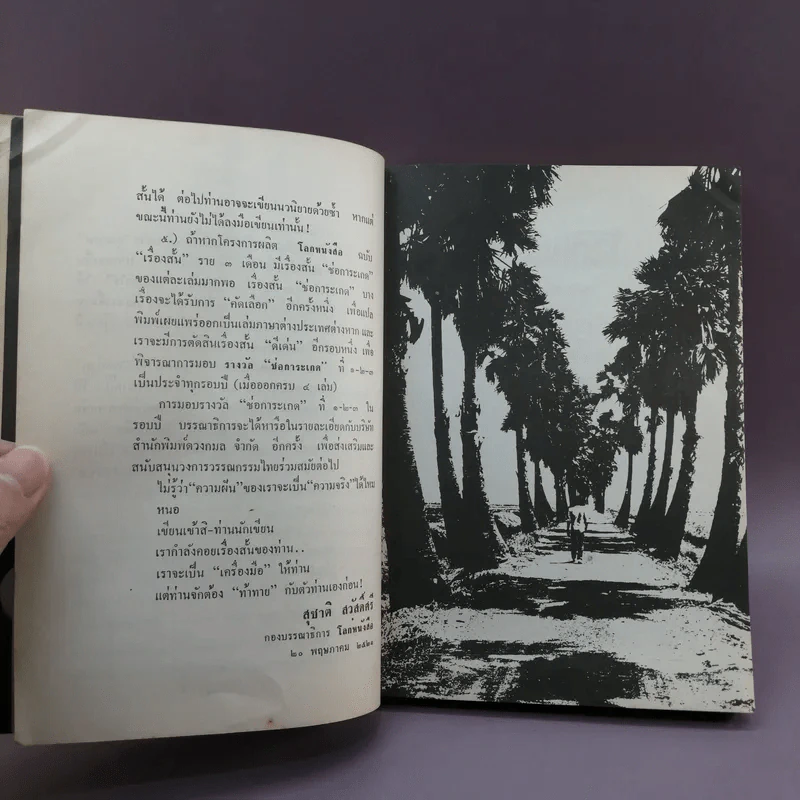 สั้นได้ ต่อไปท่านอาจจะเขียนนวนิยายด้วยซ้ำ หากแต่
ขณะนี้ท่านยังไม่ได้ลงมือเขียนเท่านั้น!
๕.) ถ้าหากโครงการผลิต โลกหนังสือ ฉบับ
“เรื่องสั้น” ราย ๓ เดือน มีเรื่องสั้น “ช่อการะเกด”
ของแต่ละเล่มมากพอ เรื่องสั้น “ช่อการะเกด” บาง
เรื่องจะได้รับการ “คัดเลือก” อีกครั้งหนึ่ง เพื่อแปล
พิมพ์เผยแพร่ออกเป็นเล่มภาษาต่างประเทศต่างหาก และ
เราจะมีการตัดสินเรื่องสั้น “ดีเด่น” อีกรอบหนึ่ง เพื่อ
พิจารณาการมอบ รางวัล “ช่อการะเกด” ที่ ๑-๒-๓
เป็นประจำทุกรอบปี (เมื่อออกครบ ๔ เล่ม)
การมอบรางวัล “ช่อการะเกด” ที่ ๑-๒-๓ ใน
รอบปี บรรณาธิการจะได้หารือในรายละเอียดกับบริษัท
สำนักพิมพ์ดวงกมล จำกัด อีกครั้ง เพื่อส่งเสริมและ
สนับสนุนวงการวรรณกรรมไทยร่วมสมัยต่อไป
ไม่รู้ว่า“ความฝัน”ของเราจะเป็น“ความจริง”ได้ไหม
หนอ
เขียนเข้าสิ-ท่านนักเขียน
เรากำลังคอยเรื่องสั้นของท่าน..
เราจะเป็น “เครื่องมือ” ให้ท่าน
แต่ท่านจักต้อง “ท้าทาย” กับตัวท่านเองก่อน!
สุชาติ สวัสดิ์ศรี
กองบรรณาธิการ โลกหนังสือ
๒๐ พฤษภาคม ๒๕๒๑